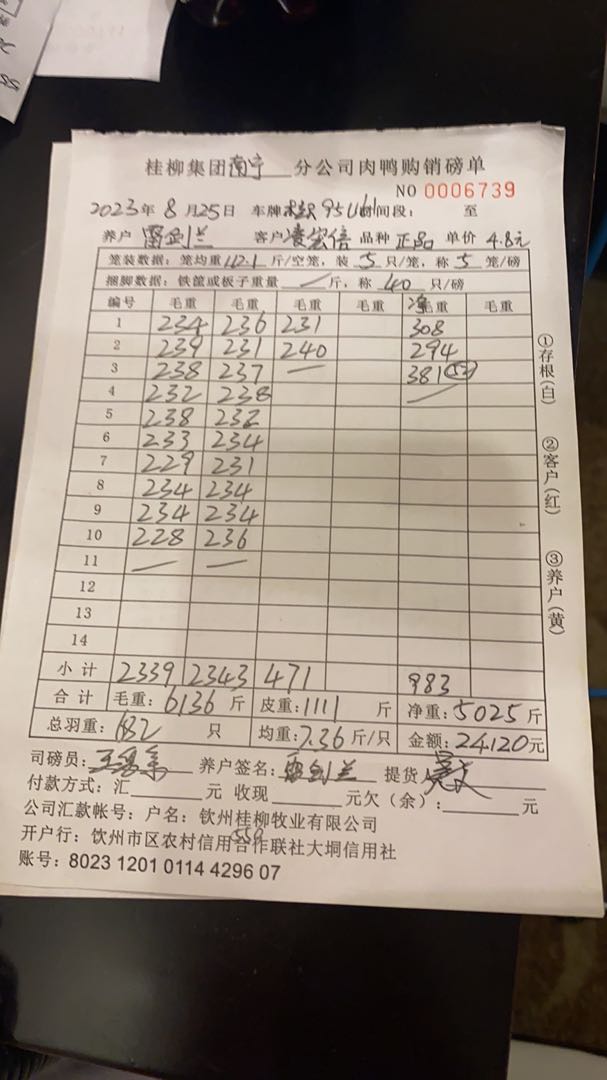 桂柳集团南宁 分公司肉鸭购销磅单
NO 0006739
2023年 8 月25日 车牌 时间段: 至
养户 雷剑兰 客户 品种 正品 单价 4.8元
笼装数据: 笼均重 112.1 斤/空笼, 装 5 只/笼, 称 5 笼/磅
捆脚数据: 铁筐或板子重量 / 斤, 称 40 只/磅
编号 毛重 毛重 毛重 毛重 净重 毛重
1 234 236 231 308
2 239 231 240 294
3 238 237 — 381 (52)
4 232 238 —
5 238 232
6 233 234
7 229 231
8 234 234
9 234 234
10 228 236
11 — —
12
13
14
小计 2339 2343 471 983
合计 毛重: 6136 斤 皮重: 1111 斤 净重: 5025 斤
总羽重: 682 只 均重: 7.36 斤/只 金额: 24120元
司磅员: 养户签名: 雷剑兰 提货人
付款方式: 汇 元 收现 元欠(余): 元
公司汇款帐号: 户名: 钦州桂柳牧业有限公司
开户行: 钦州市区农村信用合作联社大垌信用社
559
账号: 8023 1201 0114 4296 07
①存根(白) ②客户(红) ③养户(黄)